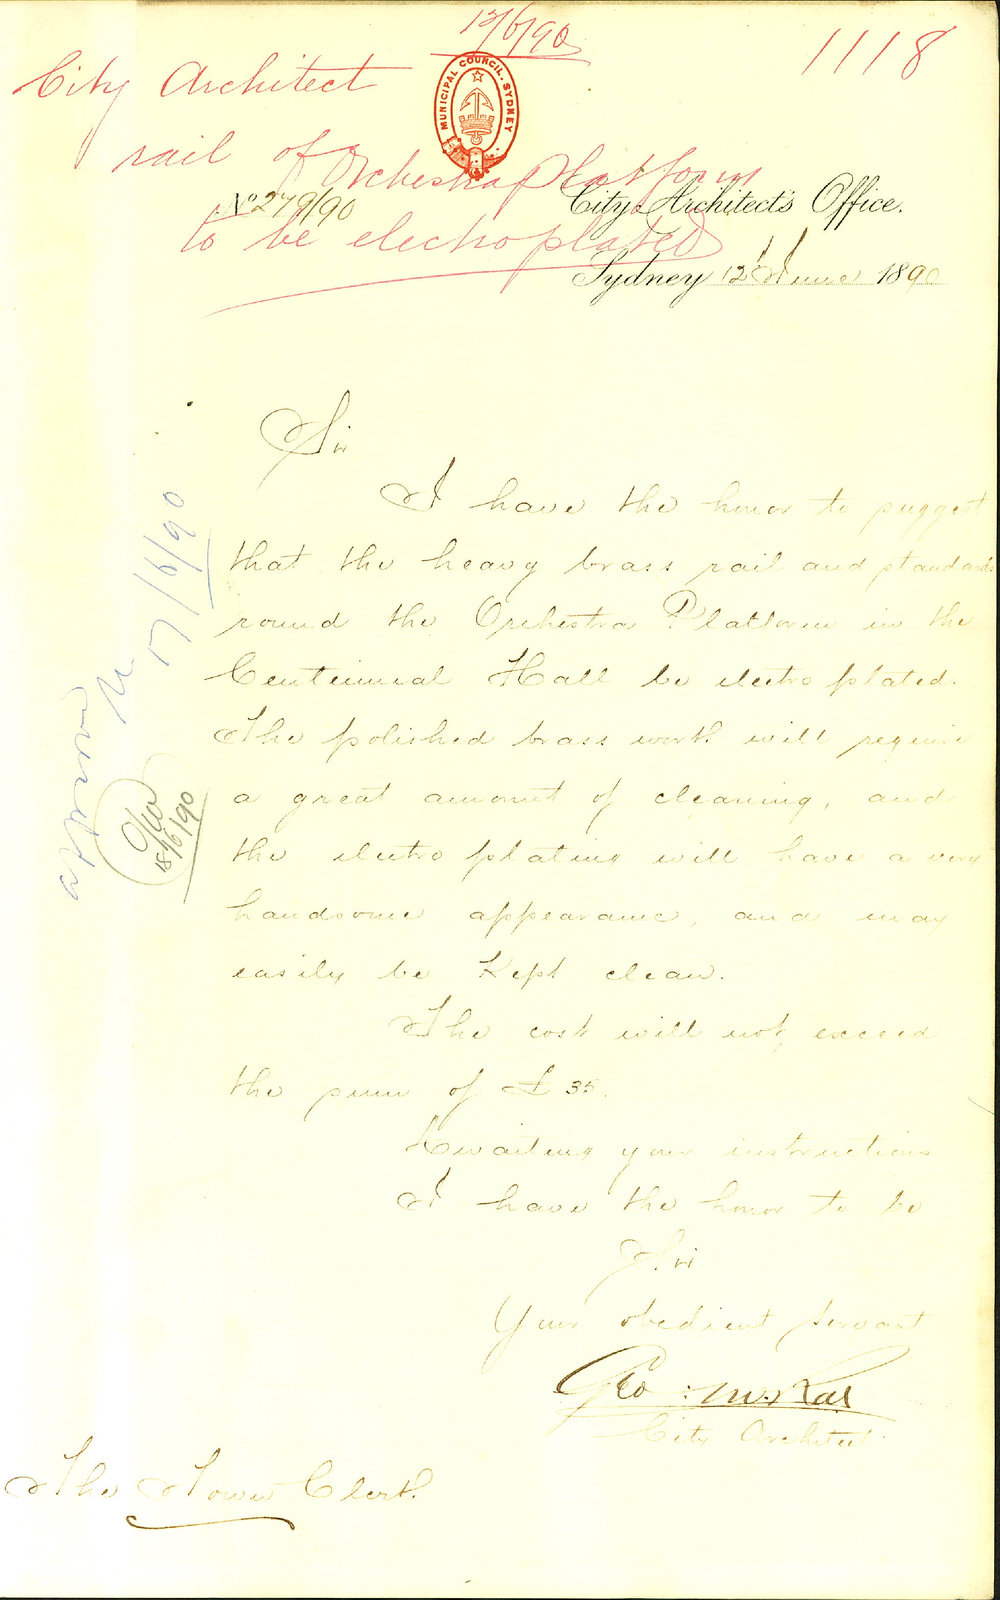 12/6/90
1118
City Architect
MUNICIPAL COUNCIL. SYDNEY
rail of Orchestra Platform
to be electroplated
No 279/90
City Architect's Office.
Sydney 12th June 1890
Sir
I have the honor to suggest
that the heavy brass rail and standards
round the Orchestra Platform in the
Centennial Hall be electro plated.
The polished brass work will require
a great amount of cleaning, and
the electro plating will have a very
handsome appearance, and may
easily be Kept clean.
The cost will not exceed
the sum of £35.
Awaiting your instructions
I have the honor to be
Sir
Your obedient servant
Geo: McRae
City Architect
The Town Clerk
approve
17/6/90
18/6/90